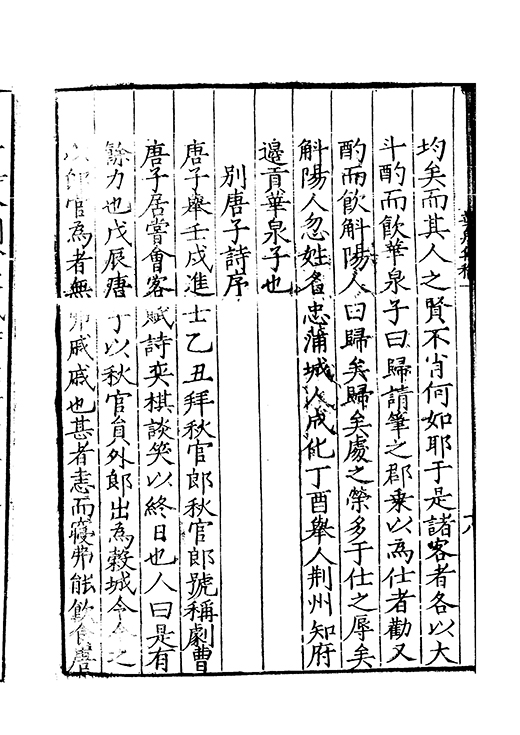 均矣而其人之賢不肖何如耶于是諸客者各以大
斗酌而飲華泉子曰歸請筆之郡乗以為仕者勸又
酌而飲斛陽人曰歸矣歸矣處之榮多于仕之辱矣
斛陽人忽姓名忠蒲城人成化丁酉舉人荆州知府
邉貢華泉子也
別唐子詩序
唐子舉壬戌進士乙丑拜秋官郎秋官郎號稱劇曹
唐子居嘗會客賦詩奕棋談笑以終日也人曰是有
餘力也戊辰唐子以秋官貟外郎出為穀城令令之
郎官為者無弗戚戚也甚者恚而寢弗能飲食唐